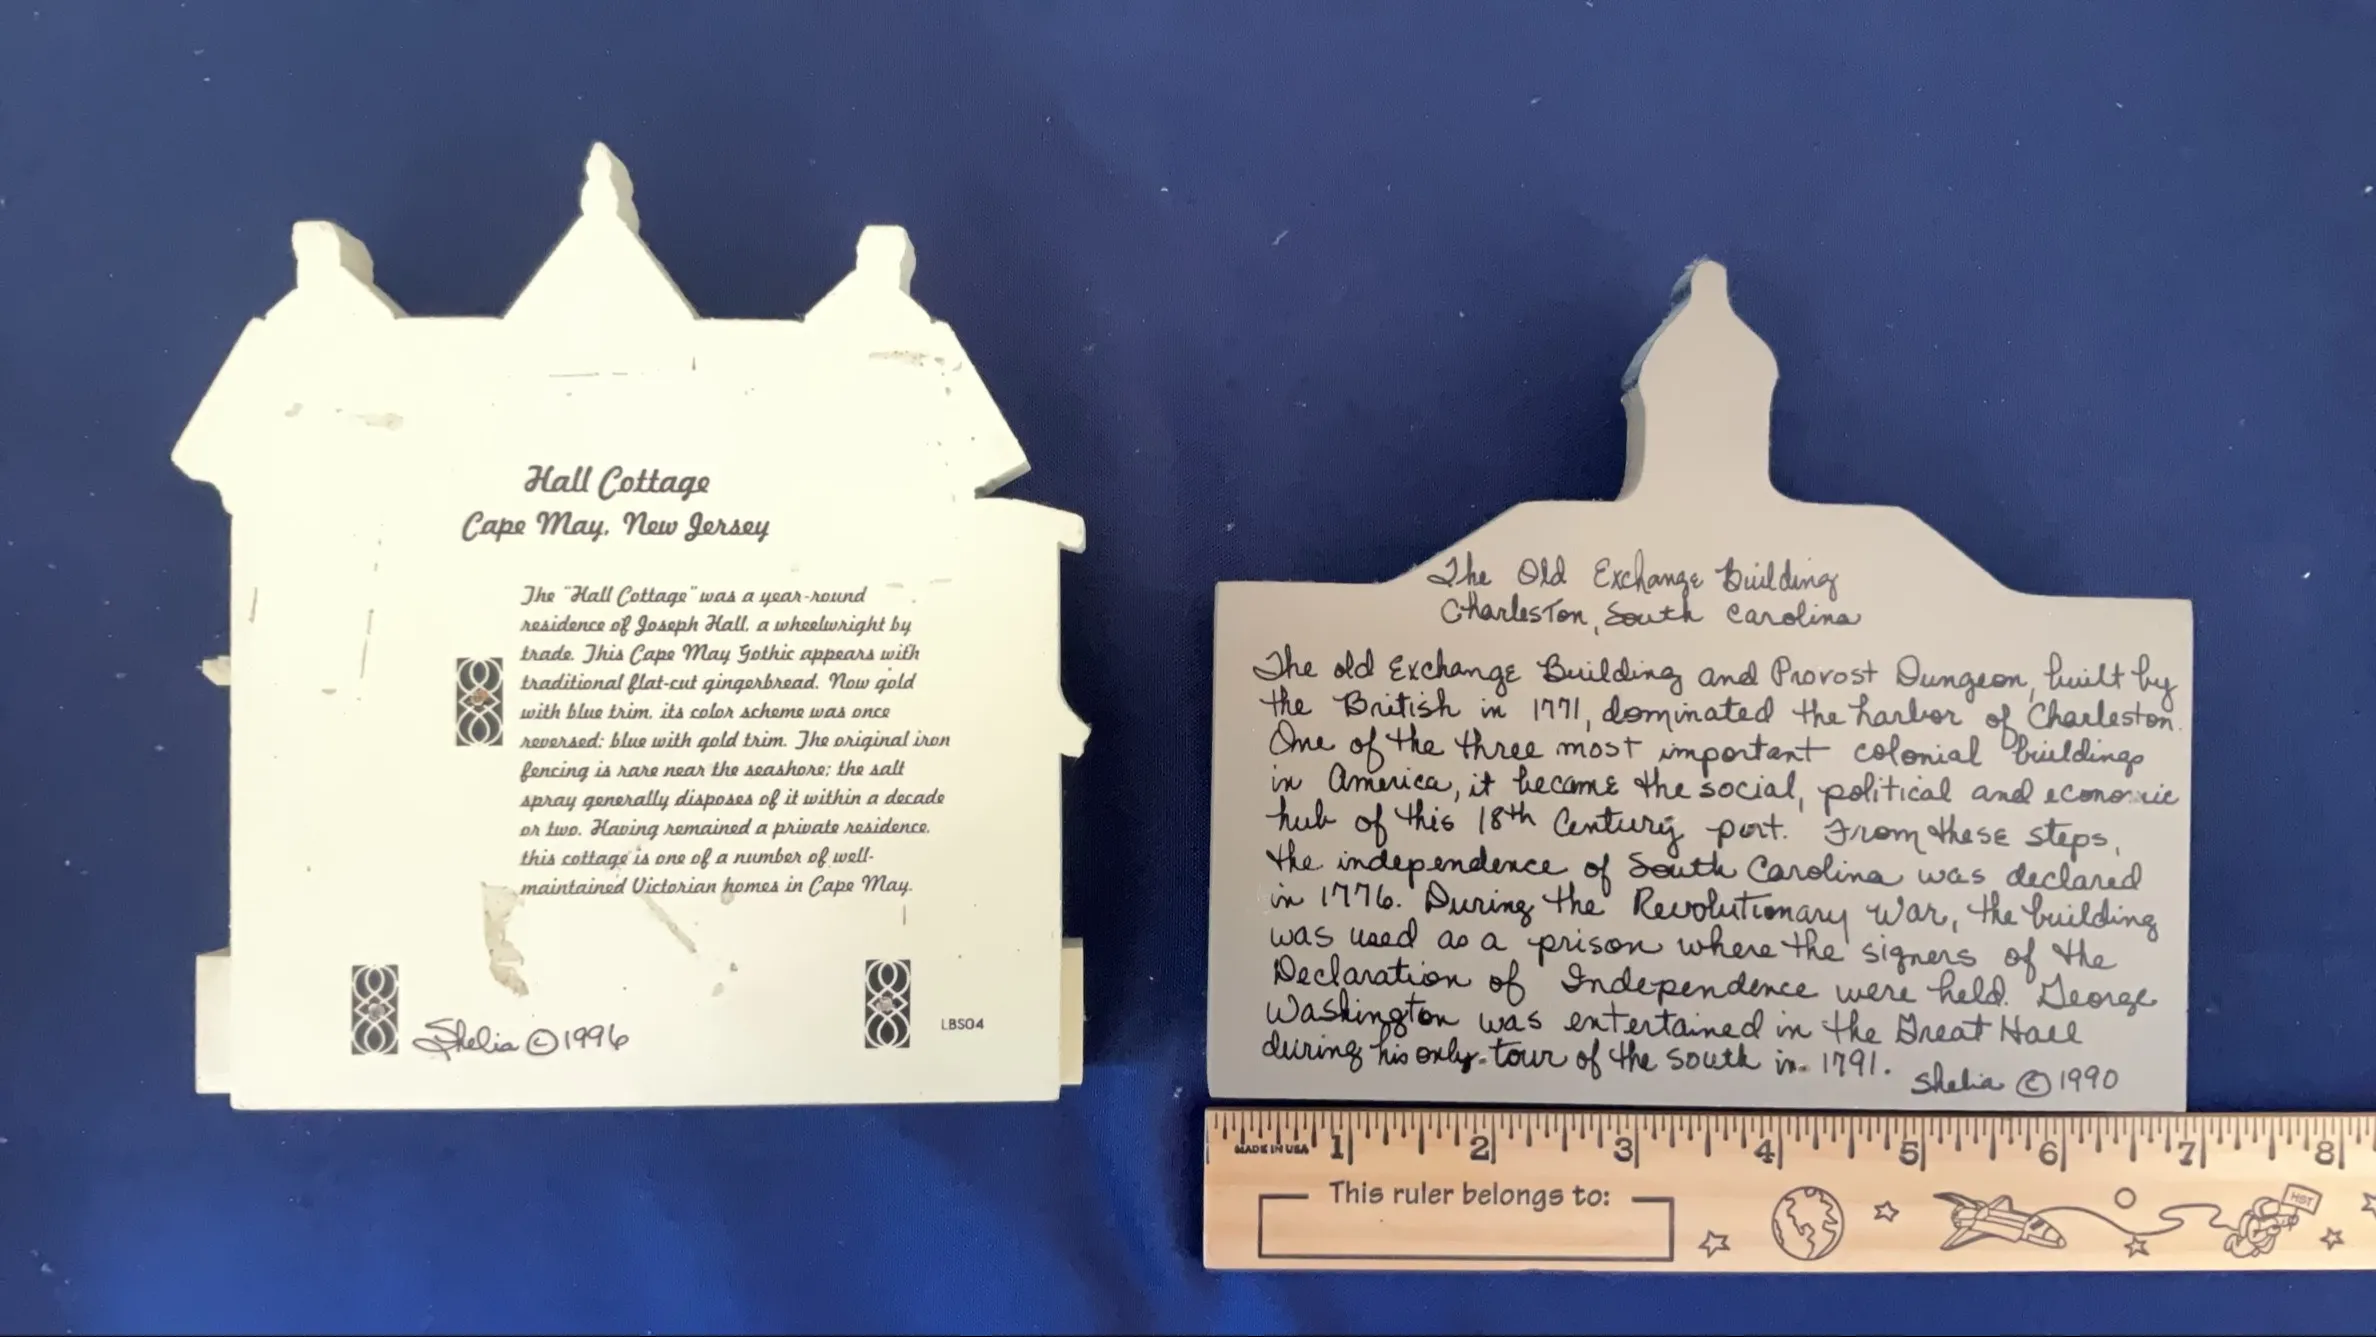 Hall Cottage
Cape May, New Jersey
The "Hall Cottage" was a year-round
residence of Joseph Hall, a wheelwright by
trade. This Cape May Gothic appears with
traditional flat-cut gingerbread. Now gold
with blue trim, its color scheme was once
reversed: blue with gold trim. The original iron
fencing is rare near the seashore; the salt
spray generally disposes of it within a decade
or two. Having remained a private residence,
this cottage is one of a number of well-
maintained Victorian homes in Cape May.
Shelia © 1996
LBS04
The Old Exchange Building
Charleston, South Carolina
The old Exchange Building and Provost Dungeon, built by
the British in 1771, dominated the harbor of Charleston.
One of the three most important colonial buildings
in America, it became the social, political and economic
hub of this 18th Century port. From these steps,
the independence of South Carolina was declared
in 1776. During the Revolutionary War, the building
was used as a prison where the signers of the
Declaration of Independence were held. George
Washington was entertained in the Great Hall
during his only tour of the south in 1791.
Shelia © 1990
MADE IN USA 1 2 3 4 5 6 7 8
This ruler belongs to:
HST